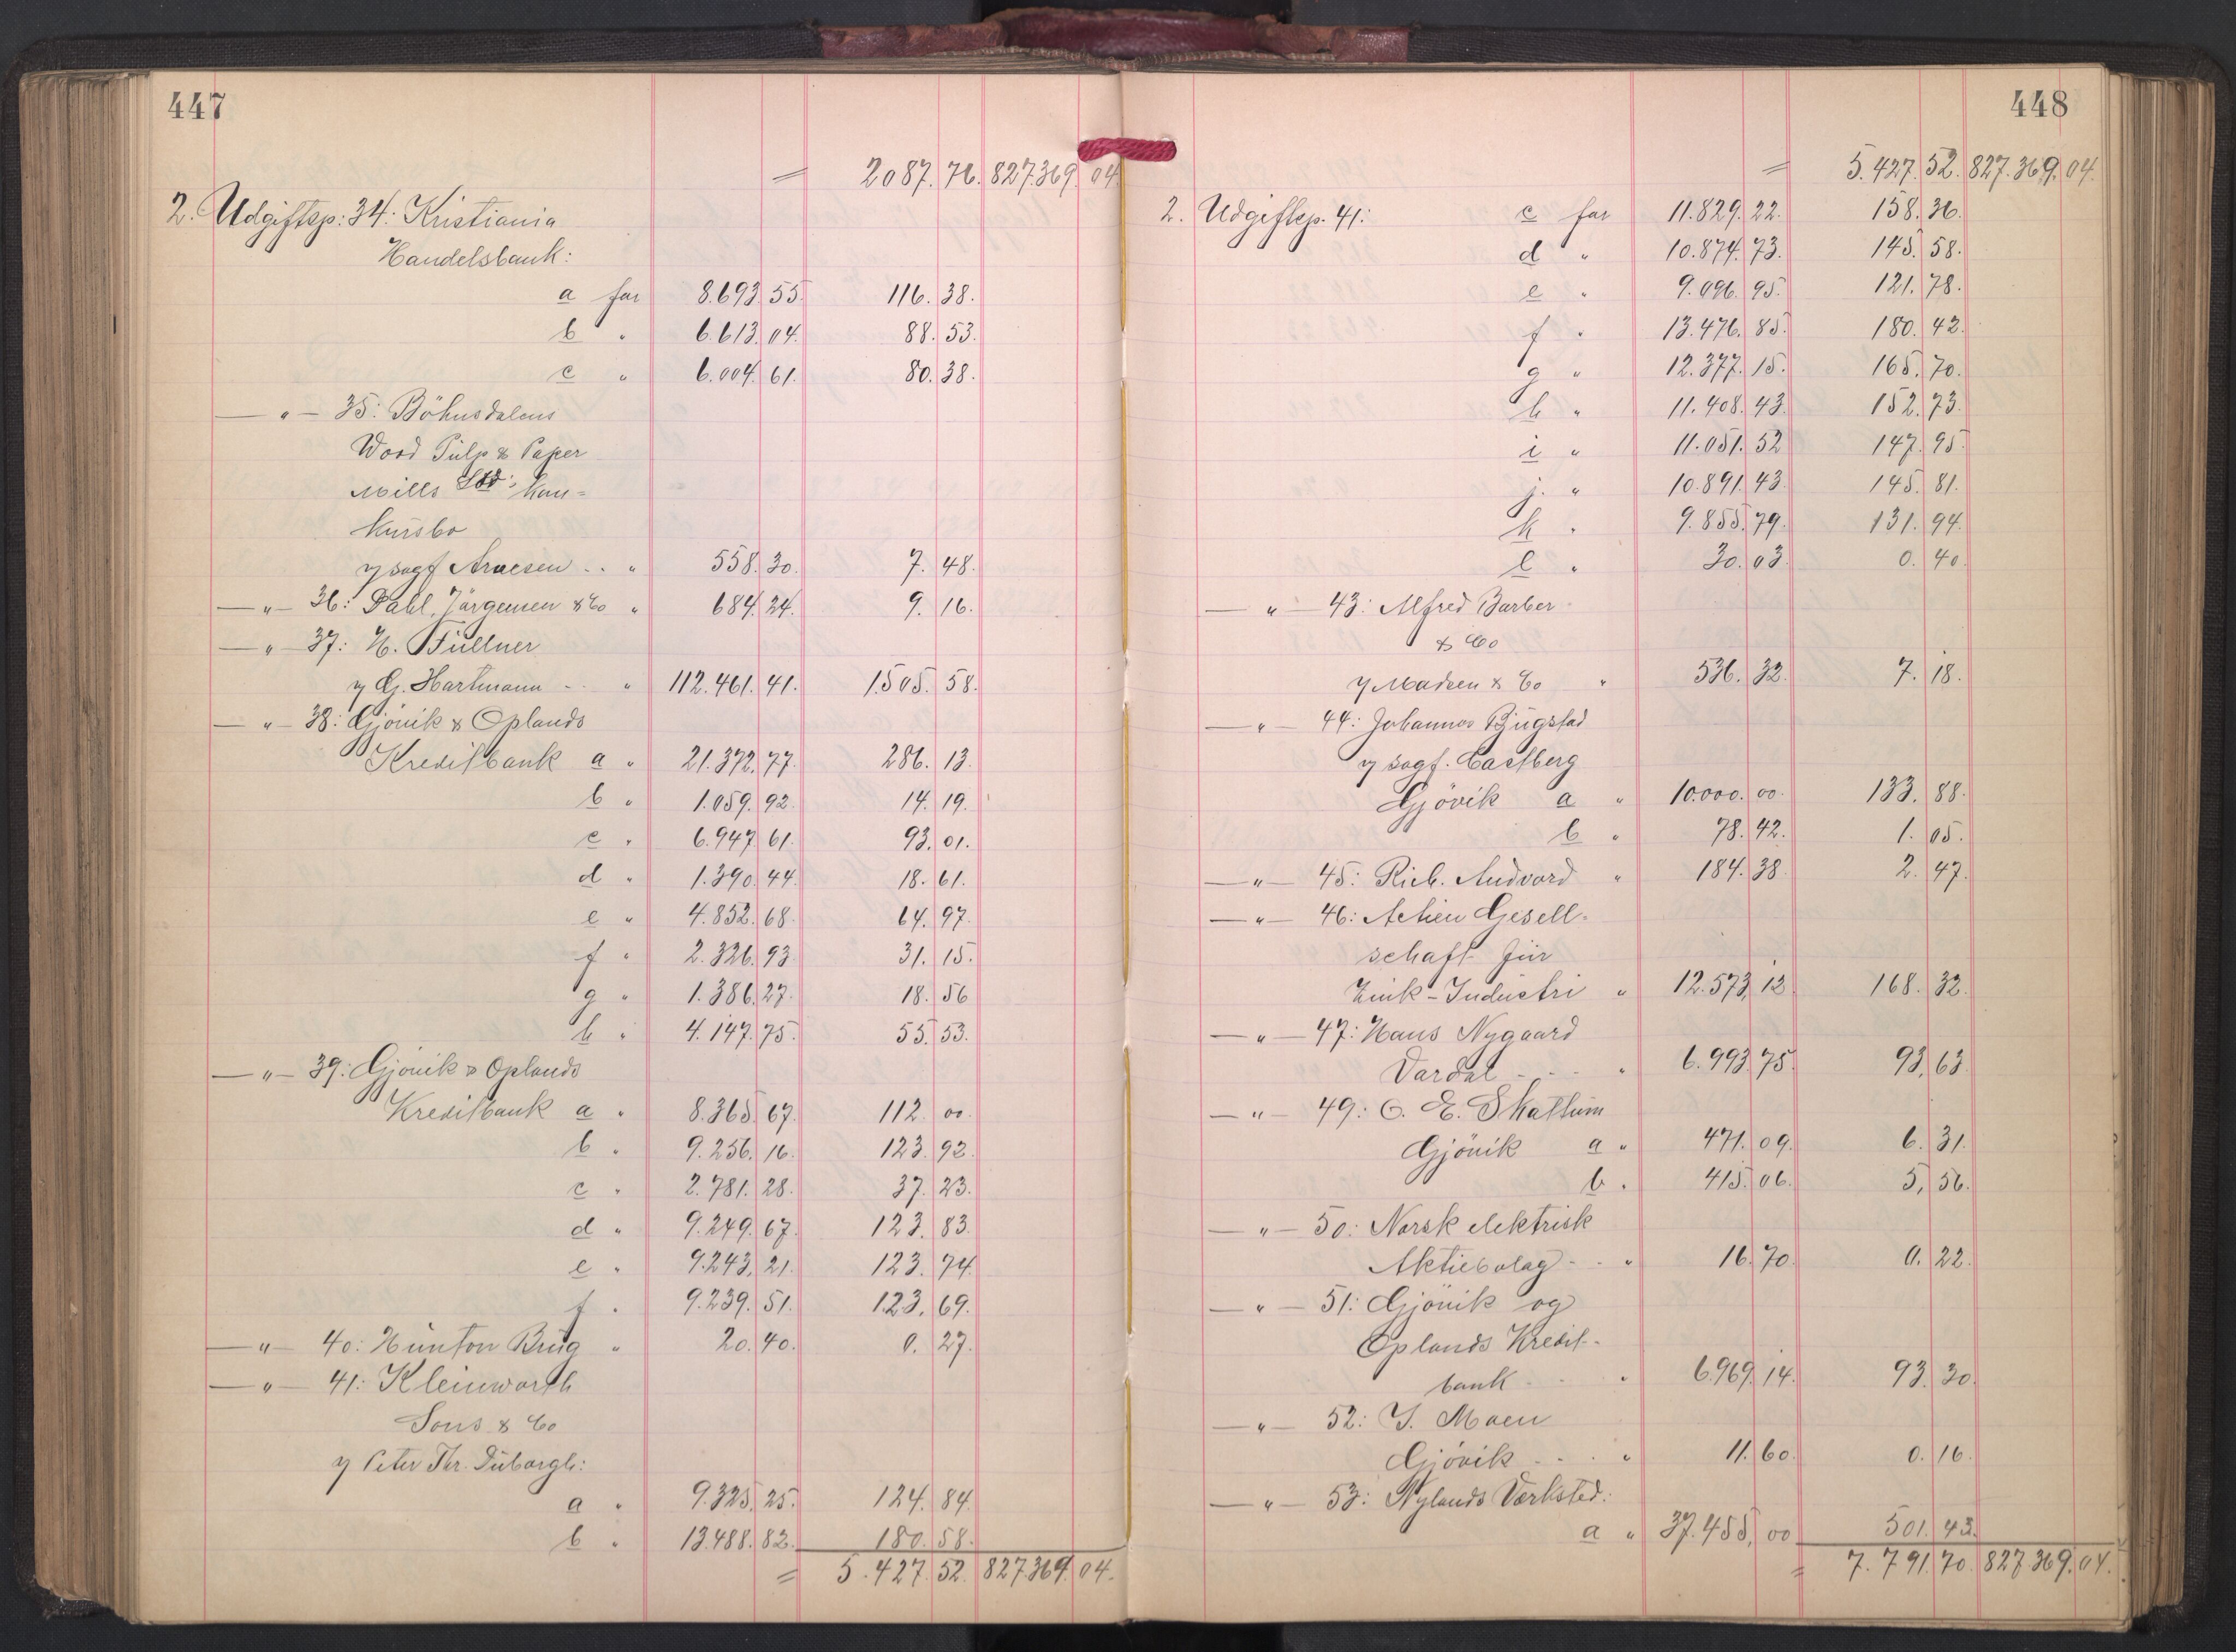 447
= 2087. 76. 827.369. 04.
2. Udgiftsp: 34: Kristiania
Handelsbank:
a for 8.693. 55. 116. 38.
b " 6.613. 04. 88. 53.
c " 6.004. 61. 80. 38.
— " — 35: Böhnsdalens
Wood Pulp & Paper
Mills Ltd: Kon=
kursbo
v sagf Arnesen .. " 558. 30. 7. 48.
— " — 36: Dahl, Jörgensen & Co " 684. 24. 9. 16.
— " — 37: H. Füllner
v G. Hartmann .. " 112.461. 41. 1505. 58.
— " — 38: Gjövik & Oplands
Kreditbank a " 21.372. 77. 286. 13.
b " 1.059. 92. 14. 19.
c " 6.947. 61. 93. 01.
d " 1.390. 44. 18. 61.
e " 4.852. 68. 64. 97.
f " 2.326. 93. 31. 15.
g " 1.386. 27. 18. 56
h " 4.147. 75. 55. 53.
— " — 39: Gjövik & Oplands
Kreditbank a " 8.365. 67. 112. 00.
b " 9.256. 16. 123. 92.
c " 2.781. 28. 37. 23.
d " 9.249. 67. 123. 83.
e " 9.243. 21. 123. 74.
f " 9.239. 51. 123. 69.
— " — 40: Hunton Brug " 20. 40. 0. 27.
— " — 41: Kleinworth
Sons & Co
v Peter Thr. Duborgh:
a " 9.325. 25. 124. 84.
b " 13.488. 82. 180. 58.
= 5.427. 52. 827.369. 04.
448
= 5.427. 52. 827.369. 04.
2. Udgiftsp. 41: c for 11.829. 22. 158. 36.
d " 10.874. 73. 145. 58.
e " 9.096. 95. 121. 78.
f " 13.476. 85. 180. 42.
g " 12.377. 15. 165. 70.
h " 11.408. 43. 152. 73.
i " 11.051. 52 147. 95.
j. " 10.891. 43. 145. 81.
k " 9.855. 79. 131. 94.
l " 30. 03. 0. 40
— " — 43: Alfred Barber
& Co
v Madsen & Co " 536. 32. 7. 18.
— " — 44: Johannes Bjugstad
v sagf. Castberg
Gjövik a " 10.000. 00. 133. 88.
b " 78. 42. 1. 05.
— " — 45: Rich. Andvord " 184. 38 2. 47.
— " — 46: Actien Gesell-
schaft für
Zink-Industri " 12.573. 12. 168. 32.
— " — 47: Hans Nygaard
Vardal - - - " 6.993. 75. 93. 63.
— " — 49: O. E. Skattum
Gjövik a " 471. 09. 6. 31.
b. 415. 06. 5, 56.
— " — 50: Norsk elektrisk
Aktiebolag - - " 16. 70. 0. 22.
— " — 51: Gjövik og
Oplands Kredit-
bank - - " 6.969. 14. 93. 30.
— " — 52: J. Moen
Gjövik - - " 11. 60. 0. 16.
— " — 53: Nylands Værksted:
a " 37.455, 00 501. 43.
= 7.791. 70. 827.369. 04.